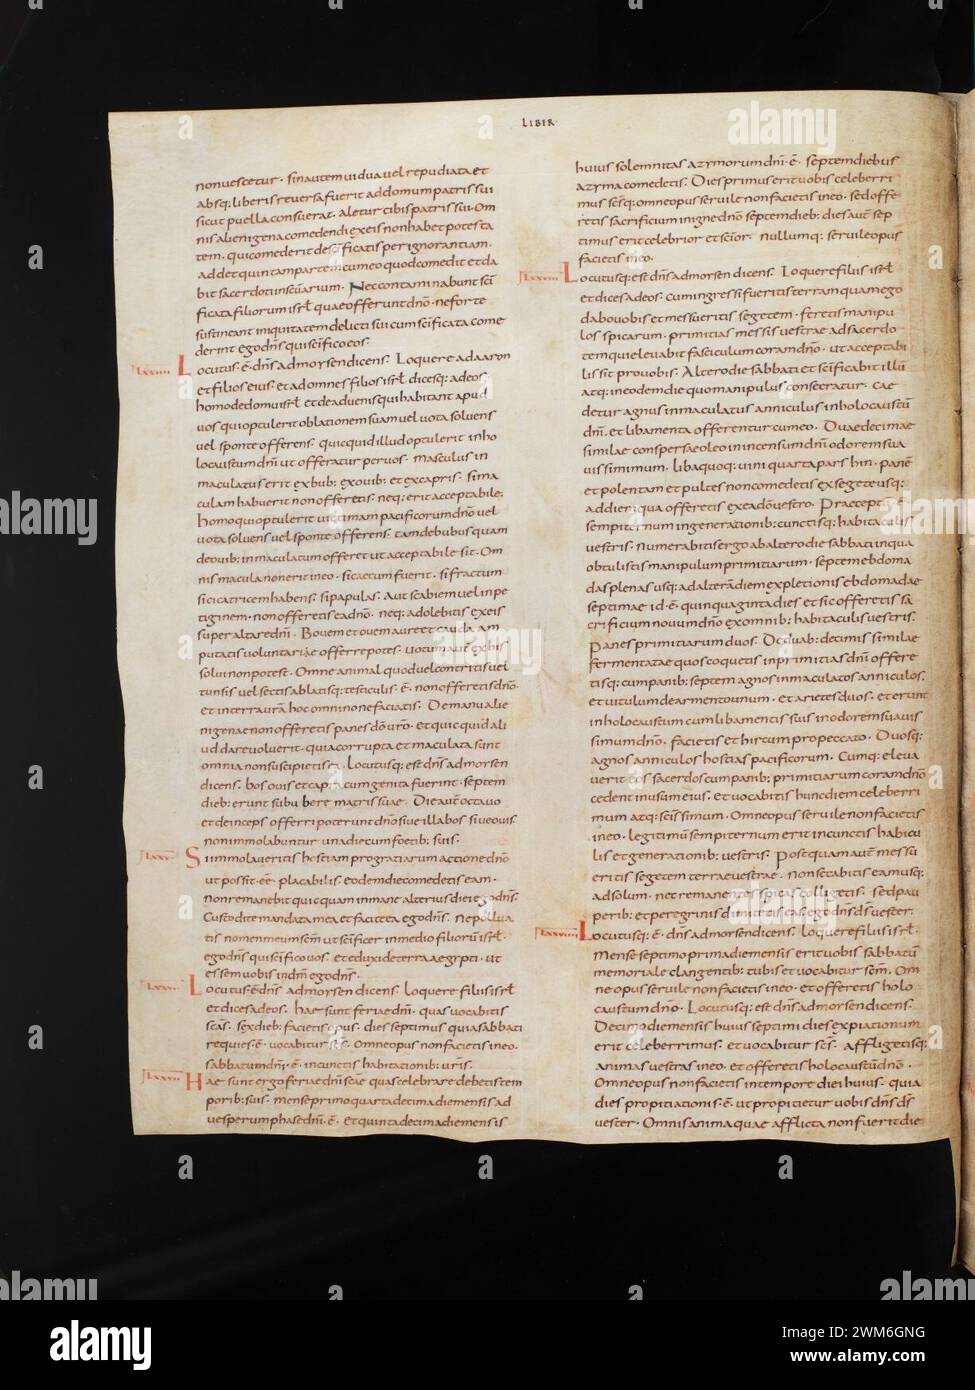 LIBER·
non vescetur · sin autem vidua vel repudiata et
absq; liberis reversa fuerit ad domum patris sui
sicut puella consuerat · aletur cibis patris sui · Om
nis alienigena comedendi ex eis non habet potesta
tem · qui comederit de scificatis per ignorantiam ·
addet quintam partem cum eo quod comedit et da
bit sacerdoti in scuarium · Nec contaminabunt sci
ficata filiorum isrl quae offerunt dno · ne forte
sustineant iniquitatem delicti sui cum scificata come
derint ego dns qui scifico eos ·
Locutus · e · dns ad morsen dicens · Loquere ad aaron
et filios eius · et ad omnes filios isrl dicesq; ad eos
homo de domu isrl et de advenis qui habitant apud
vos qui optulerit oblationem suam vel vota solvens
vel sponte offerens · quicquid illud optulerit in ho
locaustum dni ut offeratur per vos · masculus in
maculatus erit ex bub; ex ovib; et ex capris · si ma
culam habuerit non offeretis · neq; erit acceptabile;
homo qui optulerit victimam pacificorum dno vel
vota solvens vel sponte offerens · tam de bubus quam
de ovib; inmaculatum offeret ut acceptabile sit · Om
nis macula non erit in eo · si caecum fuerit · si fractum
si cicatricem habens · si papulas · Aut scabiem vel inpe
tiginem · non offeretis ea dno · neq; adolebitis ex eis
super altare dni · Bovem et ovem aure et cauda am
putatis voluntariae offerre potes · votum aut ex his
solvi non potest · Omne animal quod vel contritis vel
tunsis vel sectis ablatisq; testiculis · e · non offeretis dno ·
et in terra vra hoc omnino ne faciatis · De manu alie
nigenae non offeretis panes do vro · et quicquid ali
ud dare voluerit · quia corrupta et maculata sunt
omnia non suscipietis ea · Locutusq; est dns ad morsen
dicens · bos ovis et capra cum genita fuerint · septem
dieb; erunt sub ubere matris suae · Die aut octavo
et deinceps offerri poterunt dno sive illa bos sive ovis
non immolabuntur una die cum foetib; suis ·
Si immolaveritis hostiam pro gratiarum actione dno
ut possit · ee · placabilis · eodem die comedetis eam ·
non remanebit quicquam in mane alterius diei ego dns ·
Custodite mandata mea et facite ea ego dns · Ne pollua
tis nomen meum scm ut scificer in medio filioru isrl ·
ego dns qui scifico vos · et eduxi de terra aegypti · ut
essem vobis in dm ego dns ·
Locutus · e · dns ad morsen dicens · loquere filiis isrl
et dices ad eos · hae sunt feriae dni · quas vocabitis
scas · sex dieb; facietis opus · dies septimus quia sabbati
requies · e · vocabitur scs · Omne opus non facietis in eo ·
sabbatum dni · e · in cunctis habitationib; vris ·
Hae sunt ergo feriae dni scae quas celebrare debetis tem
porib; suis · mense primo quarta decima die mensis ad
vesperum phase dni · e · et quinta decima die mensis
huius solemnitas azymorum dni · e · septem diebus
azyma comedetis · Dies primus erit vobis celeberri
mus scsq; omne opus servile non facietis in eo · sed offe
retis sacrificium in igne dno septem dieb; dies aut sep
timus erit celebrior et scior · nullumq; servile opus
facietis in eo ·
Locutusq; est dns ad morsen dicens · Loquere filiis isrl
et dices ad eos; cum ingressi fueritis terram quam ego
dabo vobis et messueritis segetem · feretis manipu
los spicarum · primitias messis vestrae ad sacerdo
tem qui elevabit fasciculum coram dno · ut acceptabi
lis sit pro vobis · Altero die sabbati et scificabit illu
atq; in eodem die quo manipulus consecratur · cae
detur agnus inmaculatus anniculus in holocaustu
dni · et libamenta offerentur cum eo · Duae decimae
similae conspersae oleo in incensum dni odorem sua
vissimum · libaq; quoq; vini quarta pars hin · pane
et polentam et pultes non comedetis ex segete usq;
ad diem qua offeretis ex ea do vestro · Praeceptu · e ·
sempiternum in generationib; cunctisq; habitaculis
vestris · Numerabitis ergo ab altero die sabbati in qua
obtulistis manipulum primitiarum · septem ebdoma
das plenas usq; ad altera diem expletionis ebdomadae
septimae · id · e · quinquaginta dies et sic offeretis sa
crificium novum dno ex omnib; habitaculis vestris ·
Panes primitiarum duos · De duab; decimis similae
fermentatae quos coquetis in primitias dni offere
tisq; cum panib; septem agnos inmaculatos anniculos ·
et vitulum de armento unum · et arietes duos · et erunt
in holocaustum cum libamentis suis in odorem suavis
simum dno · facietis et hircum pro peccato · Duosq;
agnos anniculos hostias pacificorum · Cumq; eleva
verit eos sacerdos cum panib; primitiarum coram dno
cedent in usum eius · et vocabitis hunc diem celeberri
mum atq; scissimum · Omne opus servile non facietis
in eo · legitimum sempiternum erit in cunctis habicu
lis et generationib; vestris · Postquam aut messu
eritis segetem terrae vestrae · Non secabitis eam usq;
ad solum · nec remanentes spicas colligetis · sed pau
perib; et peregrinis dimittetis eas · ego dns ds vester ·
Locutusq; · e · dns ad morsen dicens · loquere filiis isrl ·
Mense septimo prima die mensis erit vobis sabbatu
memoriale clangentib; tubis et vocabitur scm · Om
ne opus servile non facietis in eo · et offeretis holo
caustum dno · Locutusq; est dns ad morsen dicens ·
Decimo die mensis huius septimi dies expiationum
erit celeberrimus · et vocabitur scs · affligetisq;
animas vestras in eo · et offeretis holocaustu dno ·
Omne opus non facietis in tempore diei huius · quia
dies propitiationis · e · ut propitietur vobis dns ds
vester · Omnis anima quae afflicta non fuerit die
alamy
Image ID: 2WM6GNG
www.alamy.com